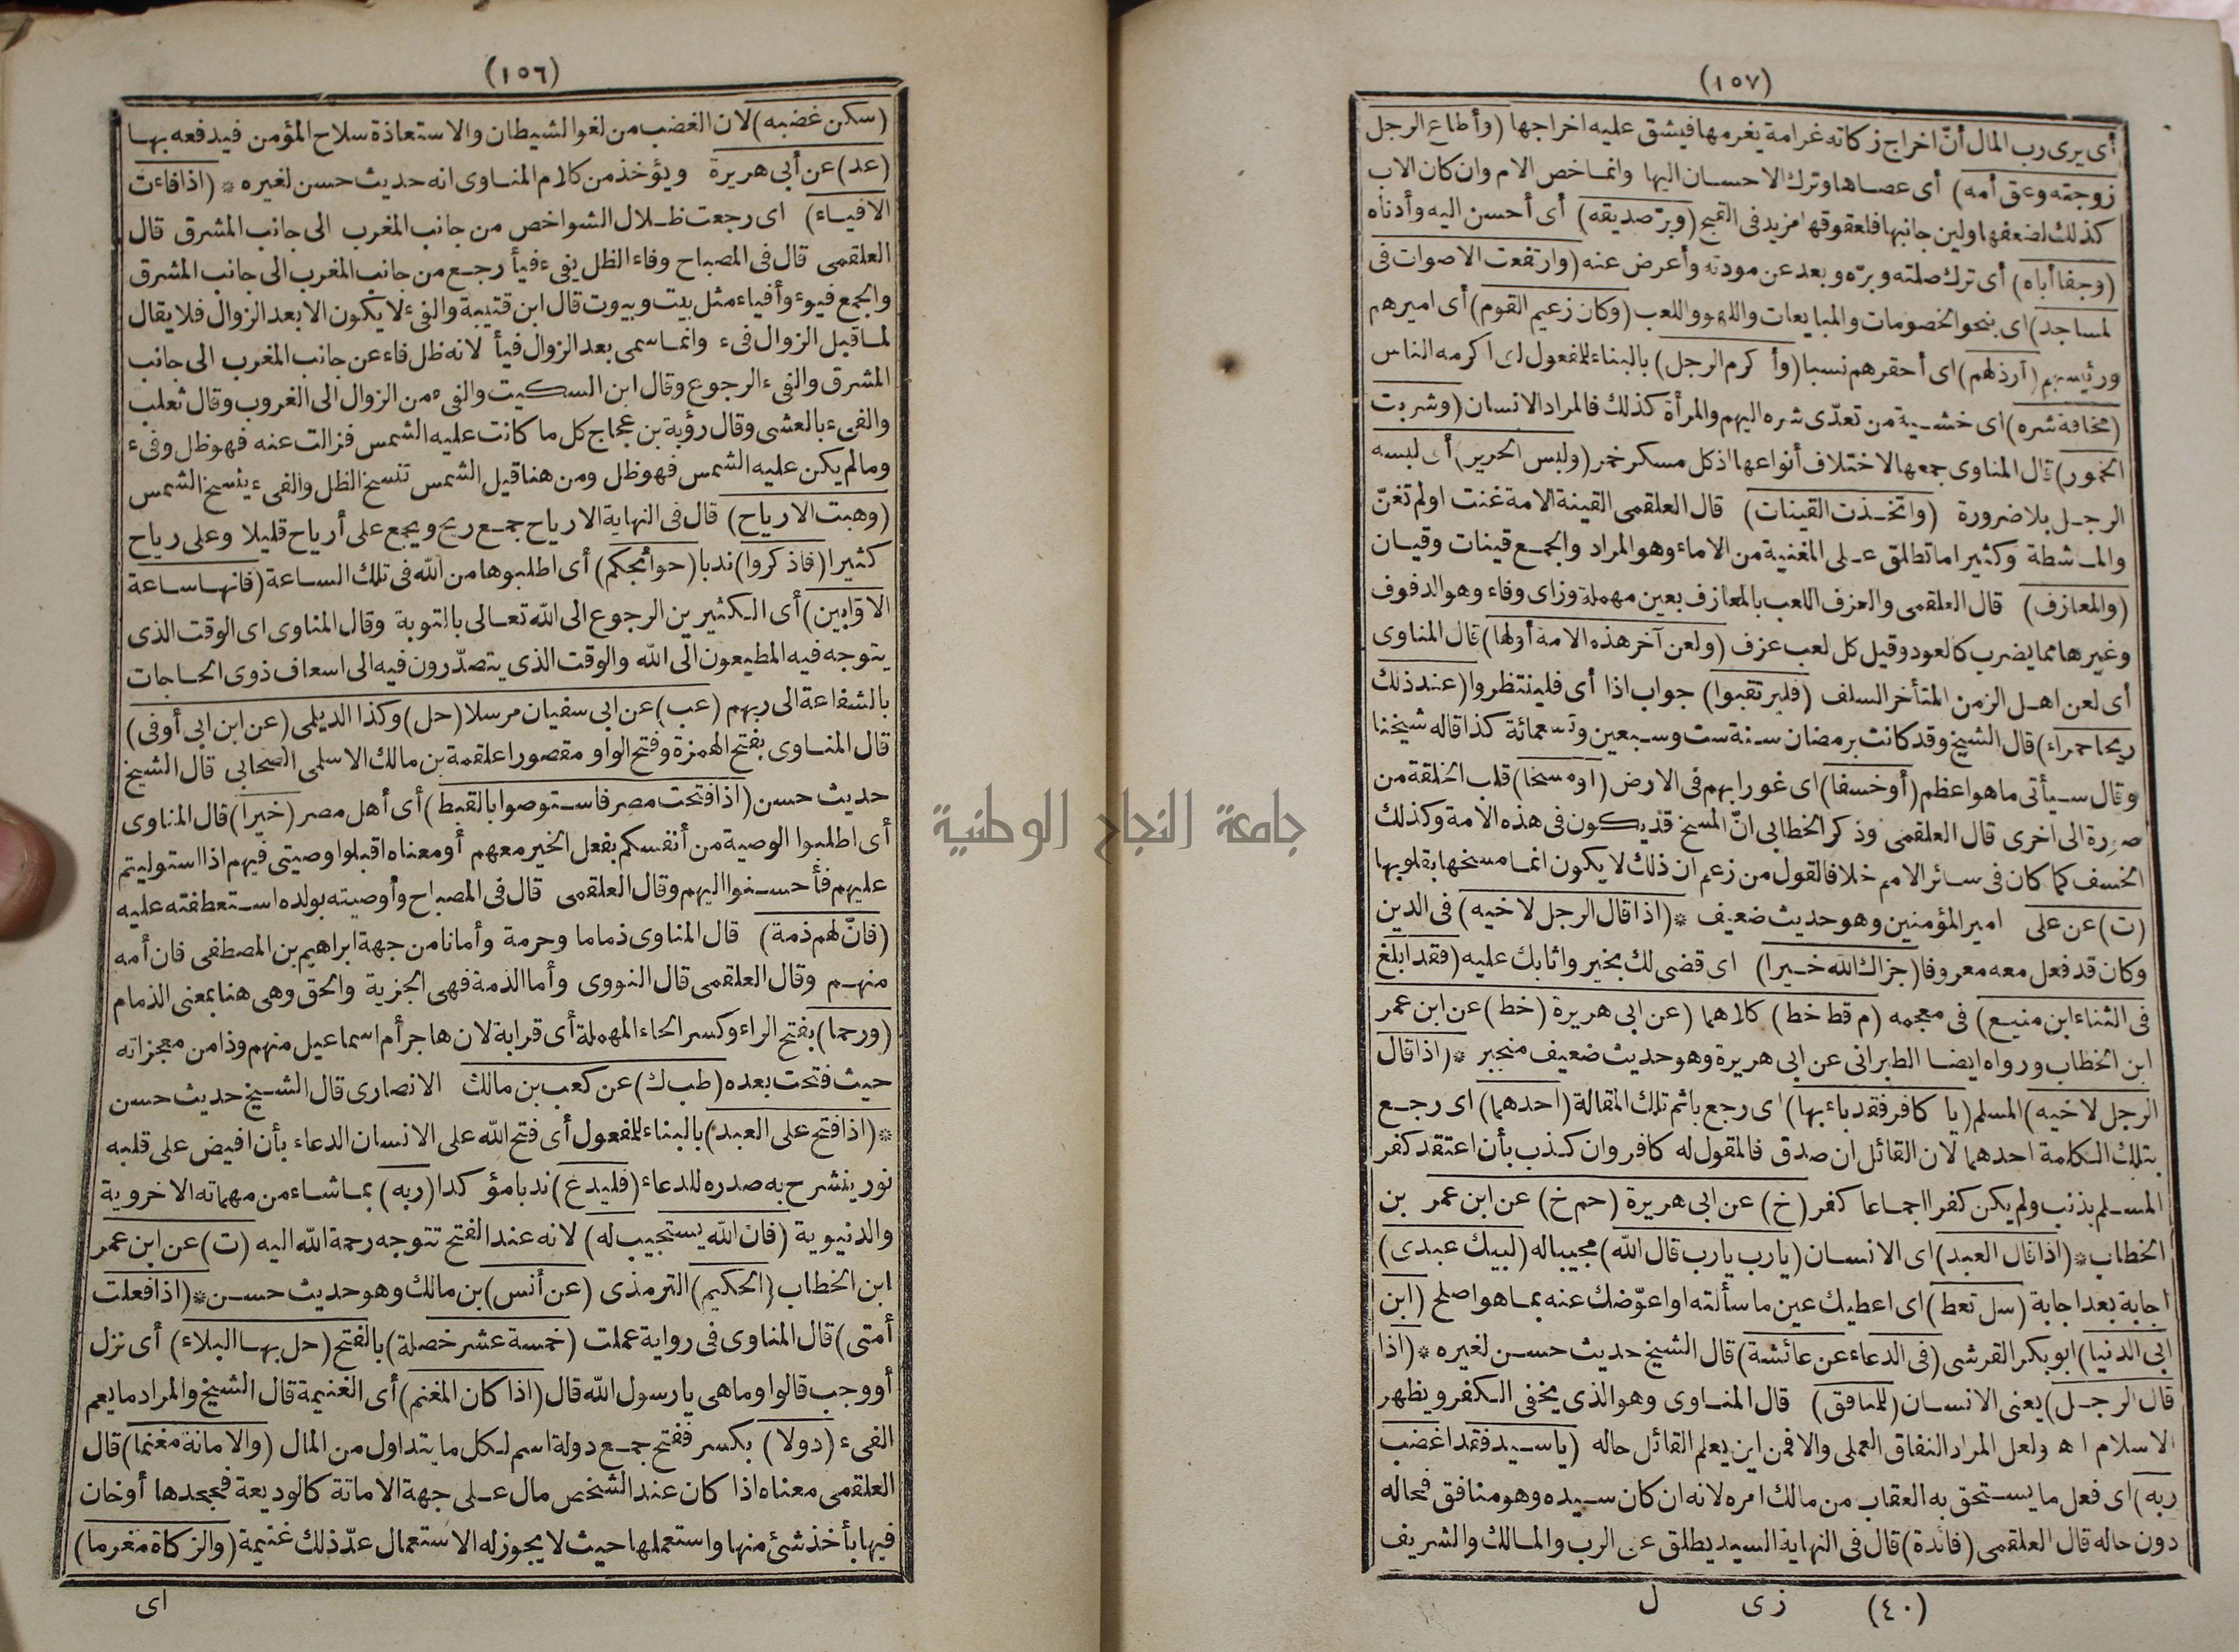 (١٥٦)
(سكن غضبه) لان الغضب من لغو الشيطان والاستعاذة سلاح المؤمن فيدفعه بها
(عد) عن أبى هريرة ويؤخذ من كلام المناوى انه حديث حسن لغيره * (اذا فاءت
الافياء) اى رجعت ظلال الشواخص من جانب المغرب الى جانب المشرق قال
العلقمى قال فى المصباح وفاء الظل يفىء فيأ رجع من جانب المغرب الى جانب المشرق
والجمع فيوء وأفياء مثل بيت وبيوت قال ابن قتيبة والفىء لا يكون الا بعد الزوال فلا يقال
لما قبل الزوال فىء وانما سمى بعد الزوال فيأ لانه ظل فاء عن جانب المغرب الى جانب
المشرق والفىء الرجوع وقال ابن السكيت والفىء من الزوال الى الغروب وقال ثعلب
والفىء بالعشى وقال رؤبة بن عجاج كل ما كانت عليه الشمس فزالت عنه فهو ظل وفىء
وما لم يكن عليه الشمس فهو ظل ومن هنا قيل الشمس تنسخ الظل والفىء ينسخ الشمس
(وهبت الارياح) قال فى النهاية الارياح جمع ريح ويجمع على أرياح قليلا وعلى رياح
كثيرا (فاذكروا) ندبا (حوائجكم) أى اطلبوها من الله فى تلك الساعة (فانها ساعة
الاوّابين) أى الكثيرين الرجوع الى الله تعالى بالتوبة وقال المناوى اى الوقت الذى
يتوجه فيه المطيعون الى الله والوقت الذى يتصدّرون فيه الى اسعاف ذوى الحاجات
بالشفاعة الى ربهم (عب) عن ابى سفيان مرسلا (حل) وكذا الديلمى (عن ابن ابى أوفى)
قال المناوى بفتح الهمزة وفتح الواو مقصورا علقمة بن مالك الاسلمى الصحابى قال الشيخ
حديث حسن (اذا فتحت مصر فاستوصوا بالقبط) أى أهل مصر (خيرا) قال المناوى
أى اطلبوا الوصية من أنفسكم بفعل الخير معهم أو معناه اقبلوا وصيتى فيهم اذا استوليتم
عليهم فأحسنوا اليهم وقال العلقمى قال فى المصباح وأوصيته بولده استعطفته عليه
(فانّ لهم ذمة) قال المناوى ذماما وحرمة وأمانا من جهة ابراهيم بن المصطفى فان أمه
منهم وقال العلقمى قال النووى وأما الذمة فهى الجزية والحق وهى هنا بمعنى الذمام
(ورحما) بفتح الراء وكسر الحاء المهملة أى قرابة لان هاجر أم اسماعيل منهم وذا من معجزاته
حيث فتحت بعده (طب ك) عن كعب بن مالك الانصارى قال الشيخ حديث حسن
* (اذا فتح على العبد) بالبناء للمفعول أى فتح الله على الانسان الدعاء بأن افيض على قلبه
نور ينشرح به صدره للدعاء (فليدع) ندبا مؤكدا (ربه) بما شاء من مهماته الاخروية
والدنيوية (فان الله يستجيب له) لانه عند الفتح تتوجه رحمة الله اليه (ت) عن ابن عمر
ابن الخطاب (الحكيم) الترمذى (عن أنس) بن مالك وهو حديث حسن * (اذا فعلت
أمتى) قال المناوى فى رواية عملت (خمسة عشر خصلة) بالفتح (حل بها البلاء) أى نزل
أو وجب قالوا وما هى يا رسول الله قال (اذا كان المغنم) أى الغنيمة قال الشيخ والمراد ما يعم
الفىء (دولا) بكسر ففتح جمع دولة اسم لكل ما يتداول من المال (والامانة مغنما) قال
العلقمى معناه اذا كان عند الشخص مال على جهة الامانة كالوديعة فجحدها أو خان
فيها بأخذ شئ منها واستعملها حيث لا يجوز له الاستعمال عدّ ذلك غنيمة (والزكاة مغرما)
اى
(١٥٧)
أى يرى رب المال أنّ اخراج زكاته غرامة يغرمها فيشق عليه اخراجها (وأطاع الرجل
زوجته وعق أمه) أى عصاها وترك الاحسان اليها وانما خص الام وان كان الاب
كذلك لضعفها ولين جانبها فلعقوقها مزيد فى القبح (وبرّ صديقه) أى أحسن اليه وأدناه
(وجفا أباه) أى ترك صلته وبرّه وبعد عن مودته وأعرض عنه (وارتفعت الاصوات فى
لمساجد) اى بنحو الخصومات والمبايعات واللهو واللعب (وكان زعيم القوم) أى اميرهم
ورئيسهم (أرذلهم) اى أحقرهم نسبا (وأكرم الرجل) بالبناء للمفعول اى اكرمه الناس
(مخافة شره) اى خشية من تعدّى شره اليهم والمرأة كذلك فالمراد الانسان (وشربت
الخمور) قال المناوى جمعها لاختلاف أنواعها اذ كل مسكر خمر (ولبس الحرير) أى لبسه
الرجل بلا ضرورة (واتخذت القينات) قال العلقمى القينة الامة غنت او لم تغنّ
والماشطة وكثيرا ما تطلق على المغنية من الاماء وهو المراد والجمع قينات وقيان
(والمعازف) قال العلقمى والعزف اللعب بالمعازف بعين مهملة وزاى وفاء وهو الدفوف
وغيرها مما يضرب كالعود وقيل كل لعب عزف (ولعن آخر هذه الامة أولها) قال المناوى
أى لعن اهل الزمن المتأخر السلف (فليرتقبوا) جواب اذا أى فلينتظروا (عند ذلك
ريحا حمراء) قال الشيخ وقد كانت برمضان سنة ست وسبعين وتسعمائة كذا قاله شيخنا
وقال سيأتى ما هو اعظم (أو خسفا) اى غورا بهم فى الارض (أو مسخا) قلب الخلقة من
صورة الى اخرى قال العلقمى وذكر الخطابى انّ المسخ قد يكون فى هذه الامة وكذلك
الخسف كما كان فى سائر الامم خلافا لقول من زعم ان ذلك لا يكون انما مسخها بقلوبها
(ت) عن على امير المؤمنين وهو حديث ضعيف * (اذا قال الرجل لاخيه) فى الدين
وكان قد فعل معه معروفا (جزاك الله خيرا) اى قضى لك بخير واثابك عليه (فقد ابلغ
فى الثناء ابن منيع) فى معجمه (م قط خط) كلاهما (عن ابى هريرة (خط) عن ابن عمر
ابن الخطاب ورواه ايضا الطبرانى عن ابى هريرة وهو حديث ضعيف منجبر * (اذا قال
الرجل لاخيه) المسلم (يا كافر فقد باء بها) اى رجع باثم تلك المقالة (احدهما) اى رجع
بتلك الكلمة احدهما لان القائل ان صدق فالمقول له كافر وان كذب بأن اعتقد كفر
المسلم بذنب ولم يكن كفرا اجماعا كفر (خ) عن ابى هريرة (حم خ) عن ابن عمر بن
الخطاب * (اذا قال العبد) اى الانسان (يارب يارب قال الله) مجيبا له (لبيك عبدى)
اجابة بعد اجابة (سل تعط) اى اعطيك عين ما سألته او اعوّضك عنه بما هو اصلح (ابن
ابى الدنيا) ابو بكر القرشى (فى الدعاء عن عائشة) قال الشيخ حديث حسن لغيره * (اذا
قال الرجل) يعنى الانسان (للمنافق) قال المناوى وهو الذى يخفى الكفر ويظهر
الاسلام اه ولعل المراد النفاق العملى والا فمن اين يعلم القائل حاله (يا سيد فقد اغضب
ربه) اى فعل ما يستحق به العقاب من مالك امره لانه ان كان سيده وهو منافق فحاله
دون حاله قال العلقمى (فائدة) قال فى النهاية السيد يطلق على الرب والمالك والشريف
(٤٠) زى ل
جامعة النجاح الوطنية